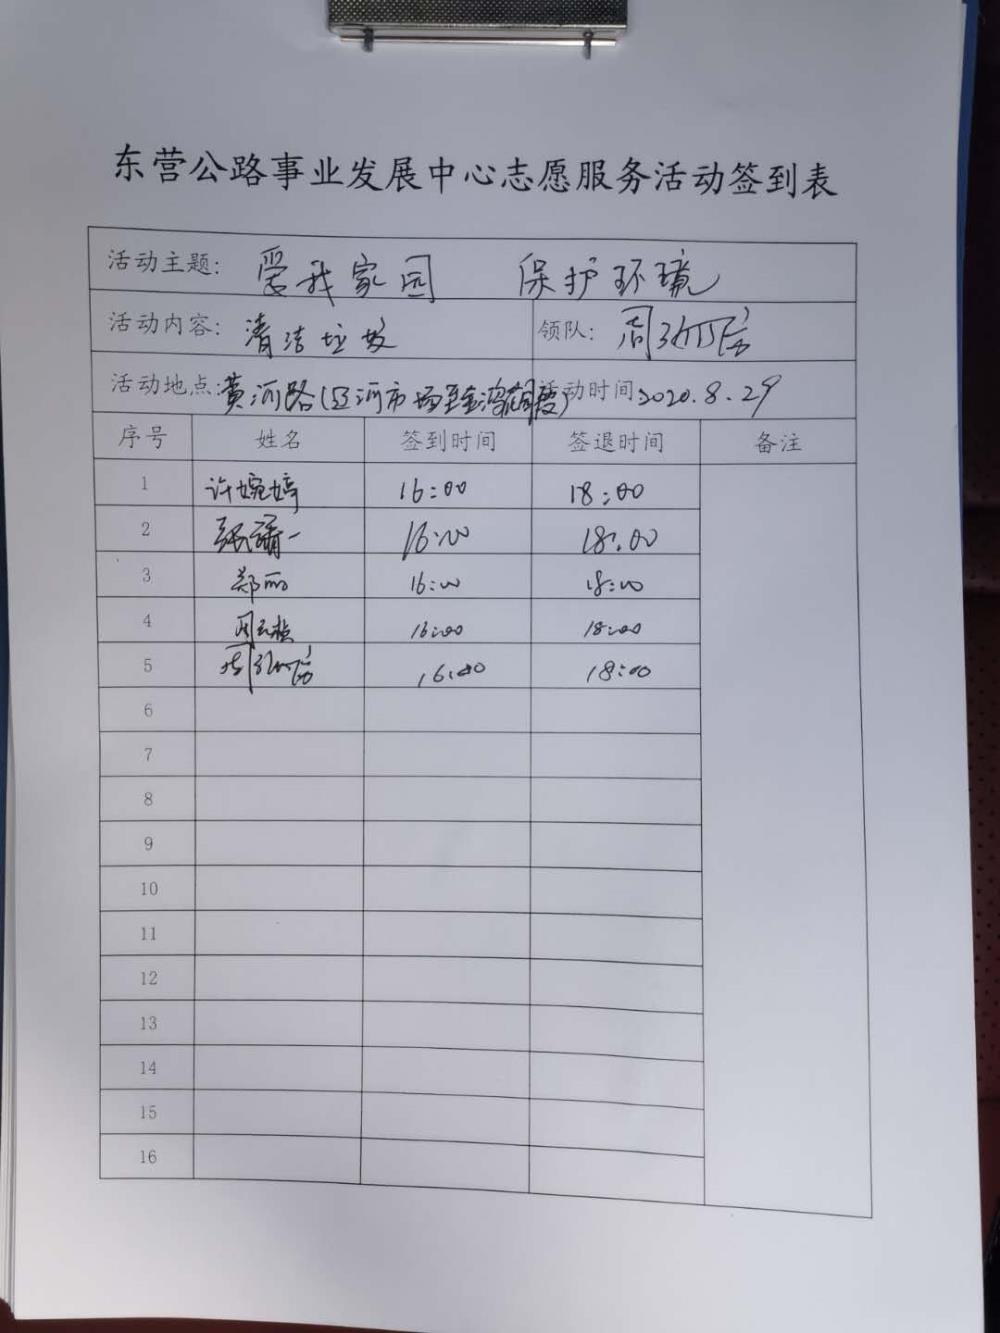 东营公路事业发展中心志愿服务活动签到表
活动主题: 爱我家园 保护环境
活动内容: 清洁垃圾 领队: 周
活动地点: 黄河路(运河市场至金 活动时间: 2020.8.29
序号 姓名 签到时间 签退时间 备注
1 许婉婷 16:00 18:00
2 张 一 16:00 18:00
3 郑丽 16:00 18:00
4 周 16:00 18:00
5 周 16:00 18:00
6
7
8
9
10
11
12
13
14
15
16